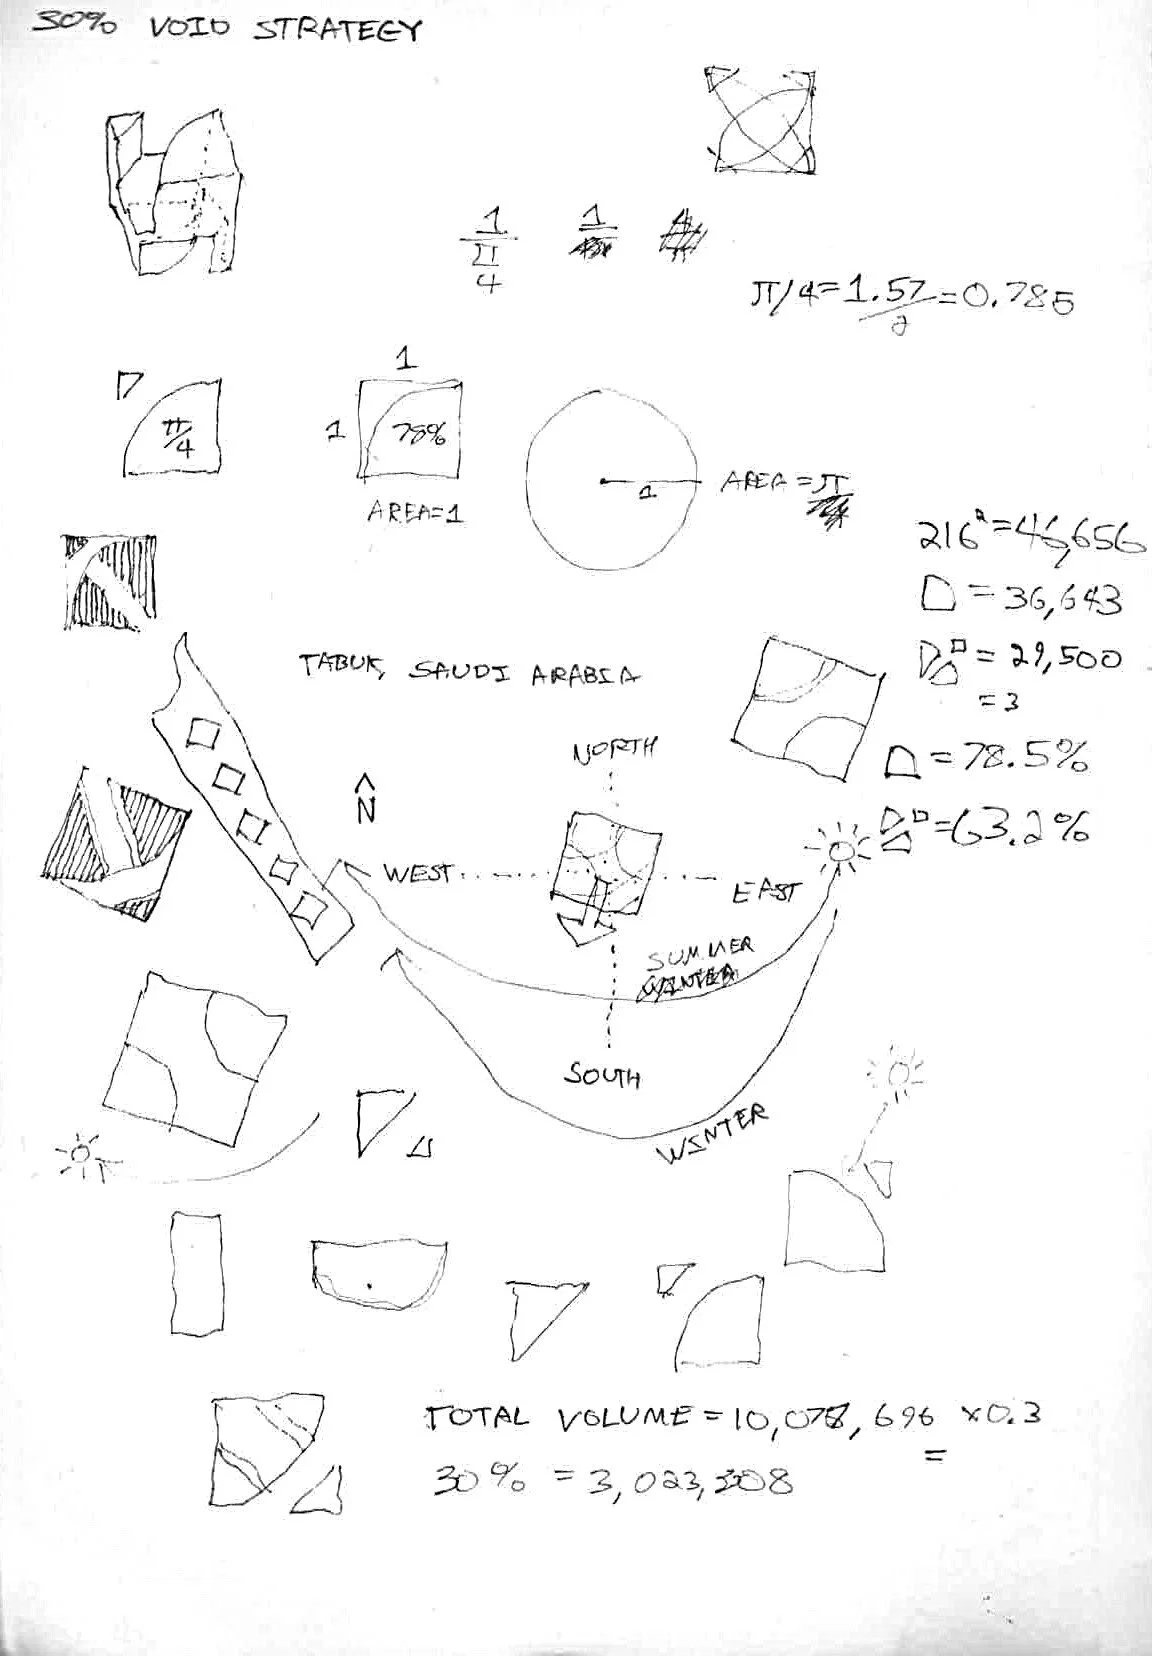 30% VOID STRATEGY
1
π
4
1
π/4=1.57/2=0.785
1
π/4
1
78%
AREA=1
1
AREA=π
216²=46,656
=36,643
=29,500
=3
=78.5%
=63.2%
TABUK, SAUDI ARABIA
NORTH
N
WEST
EAST
SUMMER
WINTER
SOUTH
WINTER
TOTAL VOLUME=10,078,696 ×0.3
=
30% =3,023,308